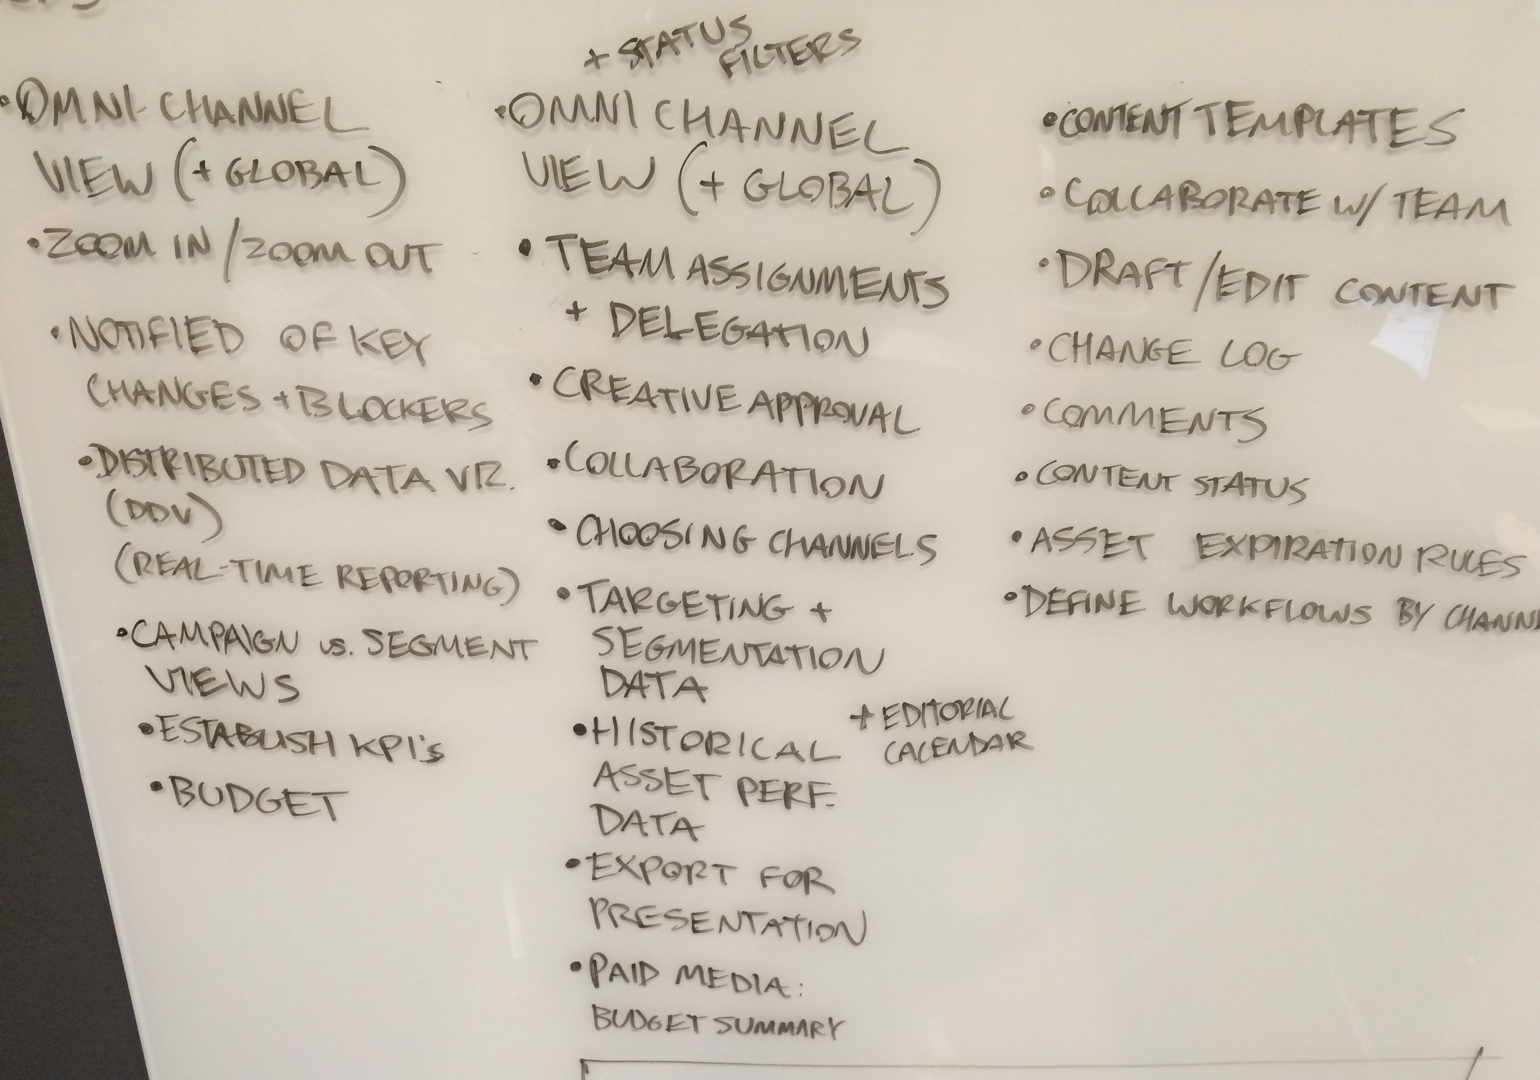 • OMNI-CHANNEL
VIEW (+ GLOBAL)
• ZOOM IN / ZOOM OUT
• NOTIFIED OF KEY
CHANGES + BLOCKERS
• DISTRIBUTED DATA VIZ.
(DDV)
(REAL-TIME REPORTING)
• CAMPAIGN vs. SEGMENT
VIEWS
• ESTABLISH KPI's
• BUDGET
+ STATUS
FILTERS
• OMNI CHANNEL
VIEW (+ GLOBAL)
• TEAM ASSIGNMENTS
+ DELEGATION
• CREATIVE APPROVAL
• COLLABORATION
• CHOOSING CHANNELS
• TARGETING +
SEGMENTATION
DATA
• HISTORICAL
ASSET PERF.
DATA
+ EDITORIAL
CALENDAR
• EXPORT FOR
PRESENTATION
• PAID MEDIA:
BUDGET SUMMARY
• CONTENT TEMPLATES
• COLLABORATE W/ TEAM
• DRAFT / EDIT CONTENT
• CHANGE LOG
• COMMENTS
• CONTENT STATUS
• ASSET EXPIRATION RULES
• DEFINE WORKFLOWS BY CHANN